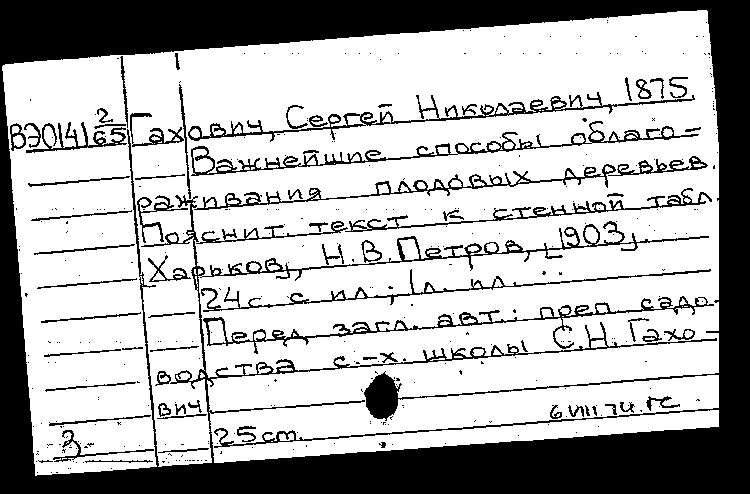 ВЭ0141 2/65 Гахович, Сергей Николаевич, 1875.
Важнейшие способы облаго=
раживания плодовых деревьев.
Пояснит. текст к стенной табл.
[Харьков], Н.В. Петров, [1903].
24 с. с ил.; 1 л. ил.
Перед загл. авт.: преп. садо-
водства с.-х. школы С.Н. Гахо-
вич
6.VIII.74. ГС
З 25 см.